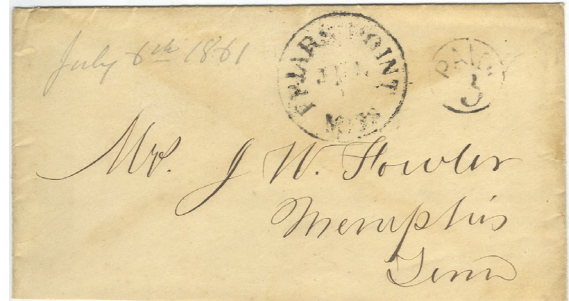 July 6th 1861
FRIARS POINT
JUL
MISS
PAID
5
Mr. J W. Fowler
Memphis
Tenn